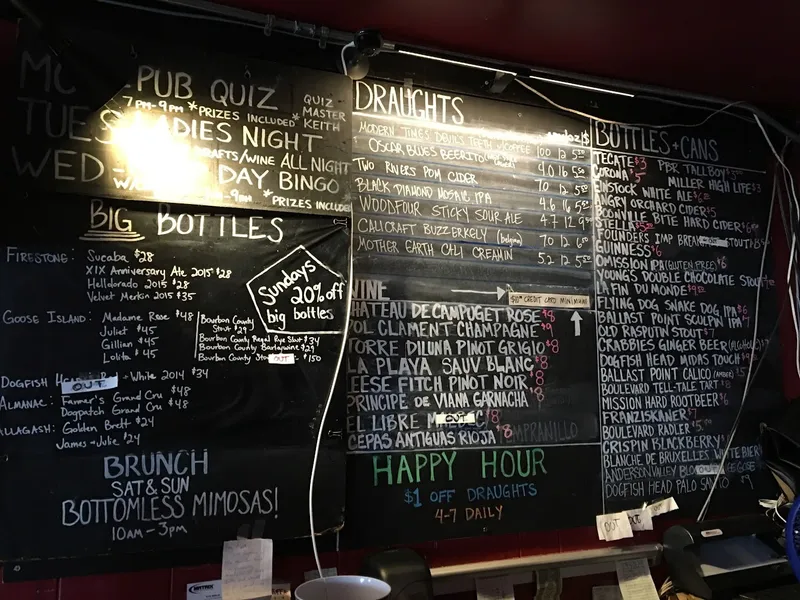 PUB QUIZ
7PM-9PM *PRIZES INCLUDED*
QUIZ
MASTER
KEITH
TUES LADIES NIGHT
CRAFTS/WINE ALL NIGHT
WED DAY BINGO
*PRIZES INCLUDED
BIG BOTTLES
FIRESTONE: Sucaba $28
XIX Anniversary Ale 2015 $28
Helldorado 2015 $28
Velvet Merkin 2015 $35
Sundays
20% off
big bottles
GOOSE ISLAND: Madame Rose $48
Juliet $45
Gillian $45
Lolita $45
Bourbon County
Stout $29
Bourbon County Regal Rye Stout $34
Bourbon County Barleywine $29
Bourbon County OUT $150
DOGFISH OUT White 2014 $34
ALMANAC: Farmer's Grand Cru $48
Dogpatch Grand Cru $48
ALLAGASH: Golden Brett $24
James + Julie $24
BRUNCH
SAT & SUN
BOTTOMLESS MIMOSAS!
10AM-3PM
DRAUGHTS
MODERN TIMES DEVIL'S TEETH w/COFFEE 100 12
OSCAR BLUES BEERITO 4.0 16 5
TWO RIVERS POM CIDER
BLACK DIAMOND MOSAIC IPA 7.0 12 5
WOODFOUR STICKY SOUR ALE 4.6 16
CALICRAFT BUZZERKELY (belgian) 4.7 12
MOTHER EARTH CALI CREAMIN 7.0 12
5.2 12 5
WINE
$10 CREDIT CARD MINIMUM
CHATEAU DE CAMPUGET ROSE $8
POL CLAMENT CHAMPAGNE $9
TORRE DILUNA PINOT GRIGIO $8
LA PLAYA SAUV BLANC $8
LEESE FITCH PINOT NOIR $8
PRINCIPE DE VIANA GARNACHA $8
EL LIBRE OUT $8
CEPAS ANTIGUAS RIOJA $8 TEMPRANILLO
HAPPY HOUR
$1 OFF DRAUGHTS
4-7 DAILY
BOTTLES + CANS
TECATE $3 PBR TALLBOY
CORONA $5 MILLER HIGH LIFE $3
EINSTOCK WHITE ALE
ANGRY ORCHARD CIDER $5
BOONVILLE BITE HARD CIDER
STELLA
FOUNDERS IMP BREAK STOUT
GUINNESS $6
OMISSION IPA (GLUTEN FREE) $6
YOUNGS DOUBLE CHOCOLATE STOUT
LA FIN DU MONDE
FLYING DOG SNAKE DOG IPA $6
BALLAST POINT SCULPIN IPA $7
OLD RASPUTIN STOUT $7
CRABBIES GINGER BEER
DOGFISH HEAD MIDAS TOUCH
BALLAST POINT CALICO (AMBER)
BOULEVARD TELL-TALE TART $8
MISSION HARD ROOTBEER $6
FRANZISKANER $7
BOULEVARD RADLER
CRISPIN BLCKBERRY
BLANCHE DE BRUXELLES WHITE BIER
ANDERSON VALLEY OUT GOSE
DOGFISH HEAD PALO SANTO
OUT OUT